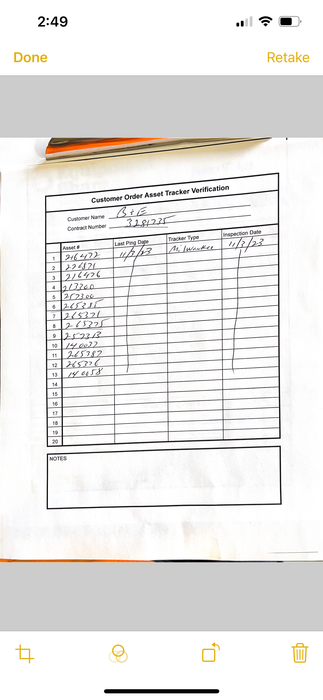 2:49
Done
Retake
Customer Order Asset Tracker Verification
Customer Name B+E
Contract Number 3281735
Asset # Last Ping Date Tracker Type Inspection Date
1 216472 11/2/23 Milwaukee 11/3/23
2
3 216476
4 217300
5 257300
6 265385
7 265371
8 265375
9 257313
10 140077
11 265387
12 265376
13 140058
14
15
16
17
18
19
20
NOTES